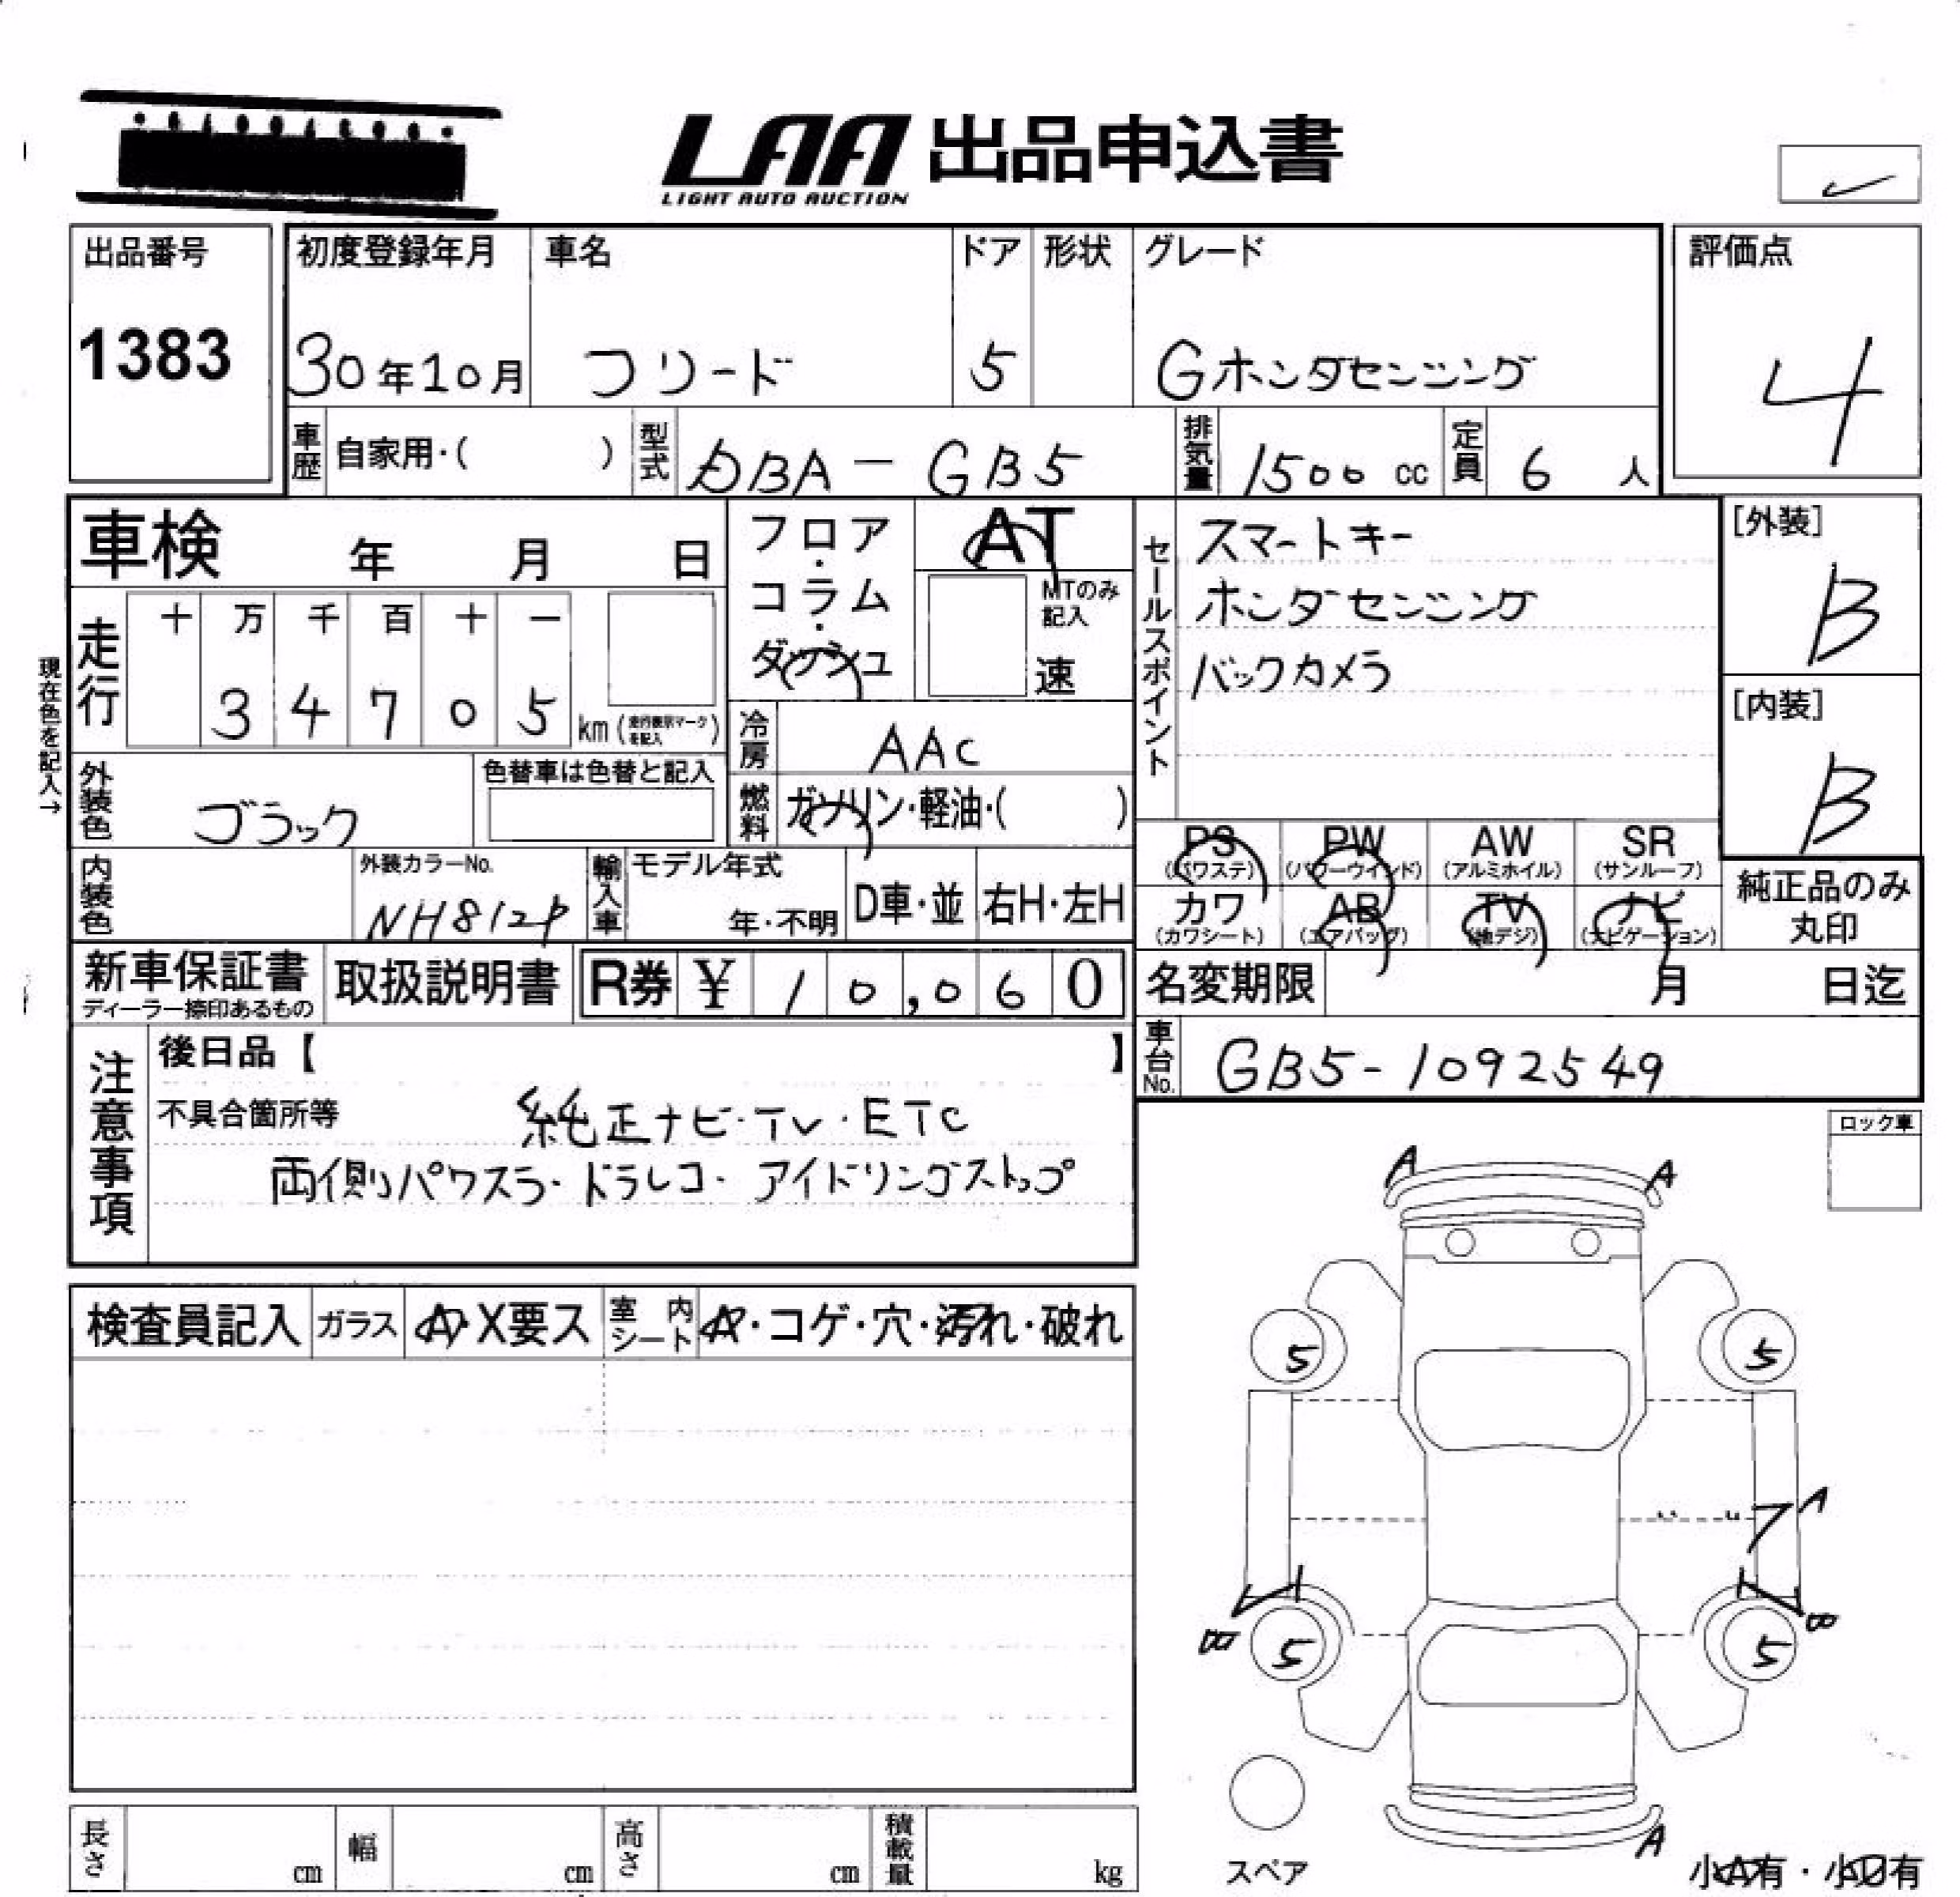 LAA 出品申込書
LIGHT AUTO AUCTION
出品番号
1383
初度登録年月
30年10月
車名
フリード
ドア
5
形状
グレード
Gホンダセンシング
評価点
4
車歴 自家用・( )
型式 DBA-GB5
排気量 1500 cc
定員 6 人
車検 年 月 日
フロア・コラム・ダッシュ
AT
MTのみ記入
速
セールスポイント
スマートキー
ホンダセンシング
バックカメラ
[外装]
B
[内装]
B
現在色を記入→
走行
十 万 千 百 十 一
3 4 7 0 5 km (走行表示マークを記入)
冷房 AAC
燃料 ガソリン・軽油・( )
外装色 ブラック
色替車は色替と記入
内装色
外装カラーNo.
NH812P
輸入車
モデル年式
年・不明
D車・並
右H・左H
PS (パワステ)
PW (パワーウインド)
AW (アルミホイル)
SR (サンルーフ)
カワ (カワシート)
AB (エアバッグ)
TV (地デジ)
ナビ (ナビゲーション)
純正品のみ丸印
新車保証書
ディーラー捺印あるもの
取扱説明書
R券 ¥ 10,060
名変期限 月 日迄
車台No. GB5-1092549
注意事項
後日品【 】
不具合箇所等
純正ナビ・TV・ETC
両側パワスラ・ドラレコ・アイドリングストップ
ロック車
検査員記入
ガラス
A・X要ス
室内シート
A・コゲ・穴・汚れ・破れ
A A
5 5
A
B B
5 5
A
スペア
小A有・小U有
長さ cm
幅 cm
高さ cm
積載量 kg